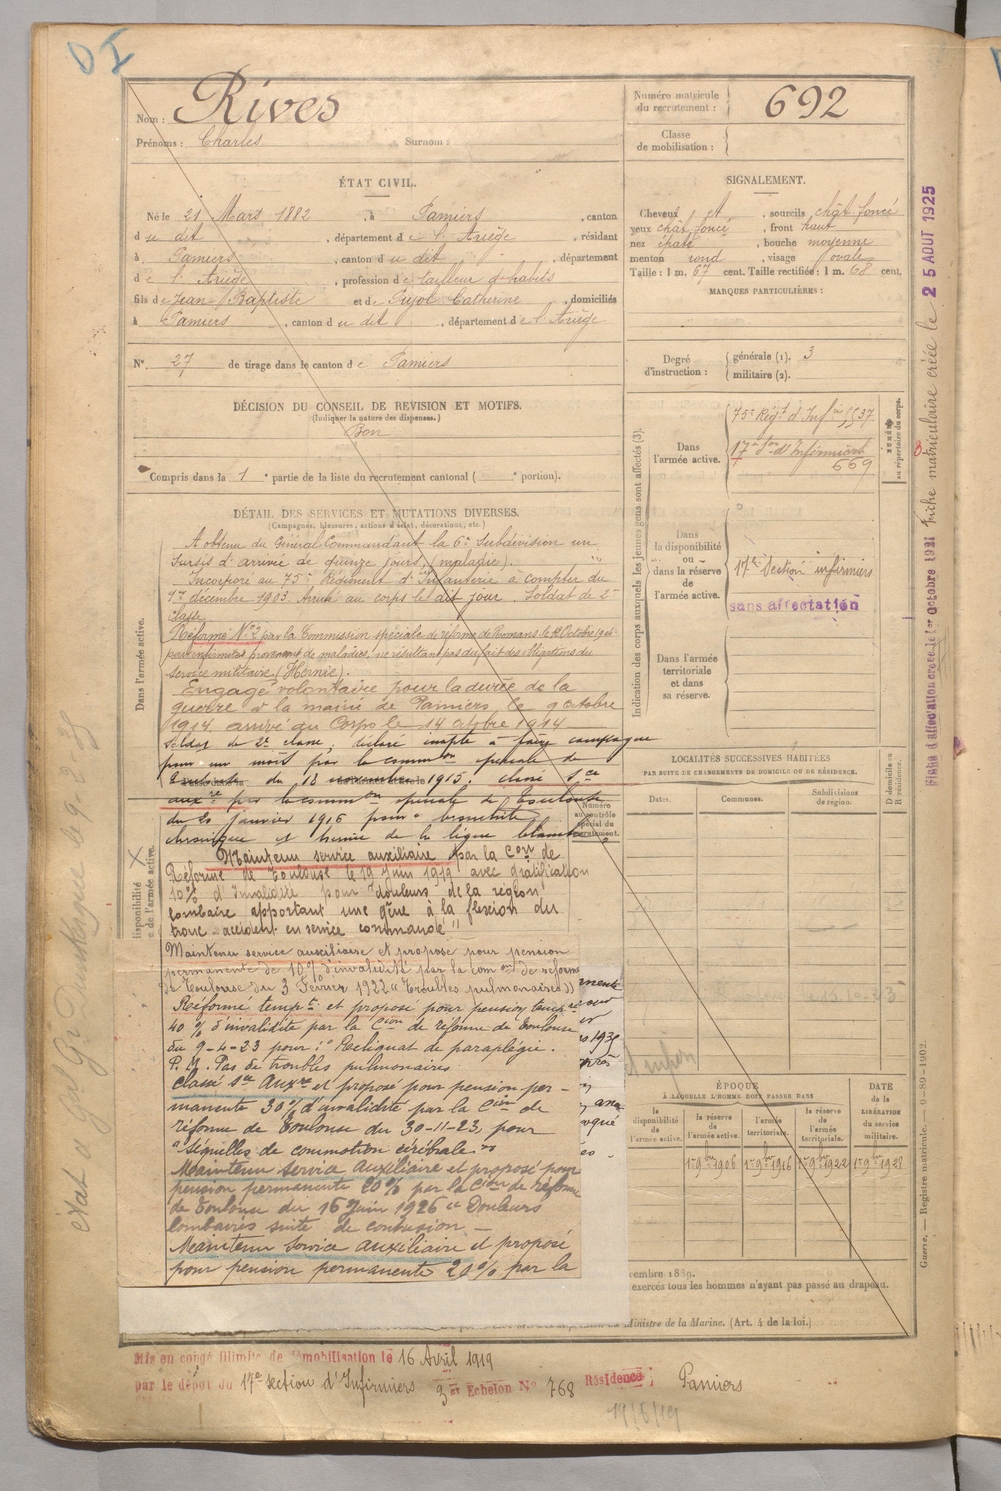 DI
Nom : Rives
Prénoms : Charles Surnom :
Numéro matricule du recrutement : 692
Classe de mobilisation :
ÉTAT CIVIL.
Né le 21 Mars 1882, à Pamiers, canton
du dit, département de l'Ariège, résidant
à Pamiers, canton du dit, département
de l'Ariège, profession de tailleur d'habits
fils de Jean Baptiste et de Pujol Catherine, domiciliés
à Pamiers, canton du dit, département de l'Ariège
N° 27 de tirage dans le canton de Pamiers
SIGNALEMENT.
Cheveux et, sourcils chât foncé
yeux chât foncé, front haut
nez épaté, bouche moyenne
menton rond, visage ovale
Taille : 1 m. 67 cent. Taille rectifiée : 1 m. 68 cent.
MARQUES PARTICULIÈRES :
Degré d'instruction : générale (1). 3
militaire (2).
DÉCISION DU CONSEIL DE REVISION ET MOTIFS.
(Indiquer la nature des dispenses.)
Bon
Compris dans la 1e partie de la liste du recrutement cantonal ( e portion).
DÉTAIL DES SERVICES ET MUTATIONS DIVERSES.
(Campagnes, blessures, actions d'éclat, décorations, etc.)
Dans l'armée active.
A obtenu du Général Commandant la 6e Subdivision un
sursis d'arrivée de quinze jours (maladie).
Incorporé au 75e Régiment d'Infanterie à compter du
1er décembre 1903. Arrivé au corps le dit jour. Soldat de 2e
classe
Réformé N° 2 par la Commission spéciale de réforme de Romans le
pour infirmités provenant de maladies, ne résultant pas du fait des obligations du
service militaire (Hernie).
Engagé volontaire pour la durée de la
guerre à la mairie de Pamiers le 9 octobre
1914, arrivé au Corps le 14 octobre 1914
soldat de 2e classe, déclaré inapte à faire campagne
pour un mois par la common spéciale de
Toulouse du 18 novembre 1915. Classé sce
auxre par la common spéciale de Toulouse
du 20 janvier 1916 pour bronchite
chronique et hernie de la ligne blanche
Maintenu service auxiliaire par la Con de
Réforme de Toulouse le 19 Juin 1919 avec gratification
10% d'Invalidité pour "douleurs de la région
lombaire apportant une gêne à la flexion du
tronc - accident en service commandé"
Maintenu service auxiliaire et proposé pour pension
permanente de 10% d'invalidité par la Comon de réforme
de Toulouse du 3 Février 1922 "Troubles pulmonaires"
Réformé tempre et proposé pour pension tempre
40 % d'invalidité par la Cion de réforme de Toulouse
du 9-4-23 pour : Reliquat de paraplégie.
P. Pas de troubles pulmonaires
Classé sce Auxre et proposé pour pension per-
manente 30% d'invalidité par la Cion de
réforme de Toulouse du 30-11-23, pour
"Séquelles de commotion cérébrale"
Maintenu Service Auxiliaire et proposé pour
pension permanente 20% par la Cion de réforme
de Toulouse du 16 Juin 1926 "Douleurs
lombaires suite de contusion -
Maintenu Service Auxiliaire et proposé
pour pension permanente 20% par la
Indication des corps auxquels les jeunes gens sont affectés (3).
NUMÉRO au répertoire du corps.
Dans l'armée active.
75e Régt d'Infie 5537
17e Son d'Infirmiers
669
Dans la disponibilité ou dans la réserve de l'armée active.
17e Section infirmiers
sans affectation
Dans l'armée territoriale et dans sa réserve.
LOCALITÉS SUCCESSIVES HABITÉES
PAR SUITE DE CHANGEMENTS DE DOMICILE OU DE RÉSIDENCE.
Dates. Communes. Subdivisions de région. D domicile ou R résidence.
ÉPOQUE
À LAQUELLE L'HOMME DOIT PASSER DANS
la disponibilité de l'armée active. la réserve de l'armée active. l'armée territoriale. la réserve de l'armée territoriale.
DATE de la LIBÉRATION du service militaire.
1er 9bre 1906 1er 9bre 1916 1er 9bre 1922 1er 9bre 1928
vembre 1889.
exercés tous les hommes n'ayant pas passé au drapeau.
Ministre de la Marine. (Art. 4 de la loi.)
Mis en congé illimité de démobilisation le 16 Avril 1919
par le dépôt du 17e section d'Infirmiers 3e Echelon N° 768 Résidence : Pamiers
19/6/19
Fiche matriculaire créée le 25 AOUT 1925
Fiche d'affectation créée le 1er octobre 1931
Guerre. — Registre matricule. — 9-89-1902.